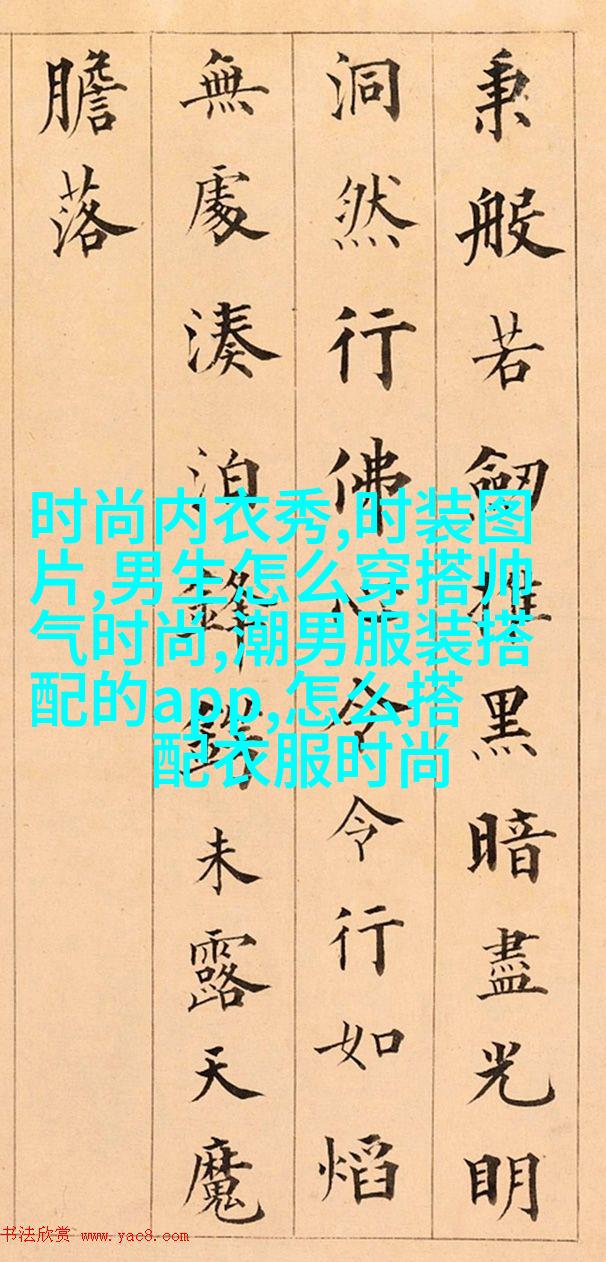 秉般若劒摧黑暗盡光明
洞然行佛心令令行如熖
無處湊泊鋒鋩未露天魔
膽落
时尚内衣秀,时装图
片,男生怎么穿搭帅
气时尚,潮男服装搭
配的app,怎么搭
配衣服时尚
书法欣赏 www.yac8.com